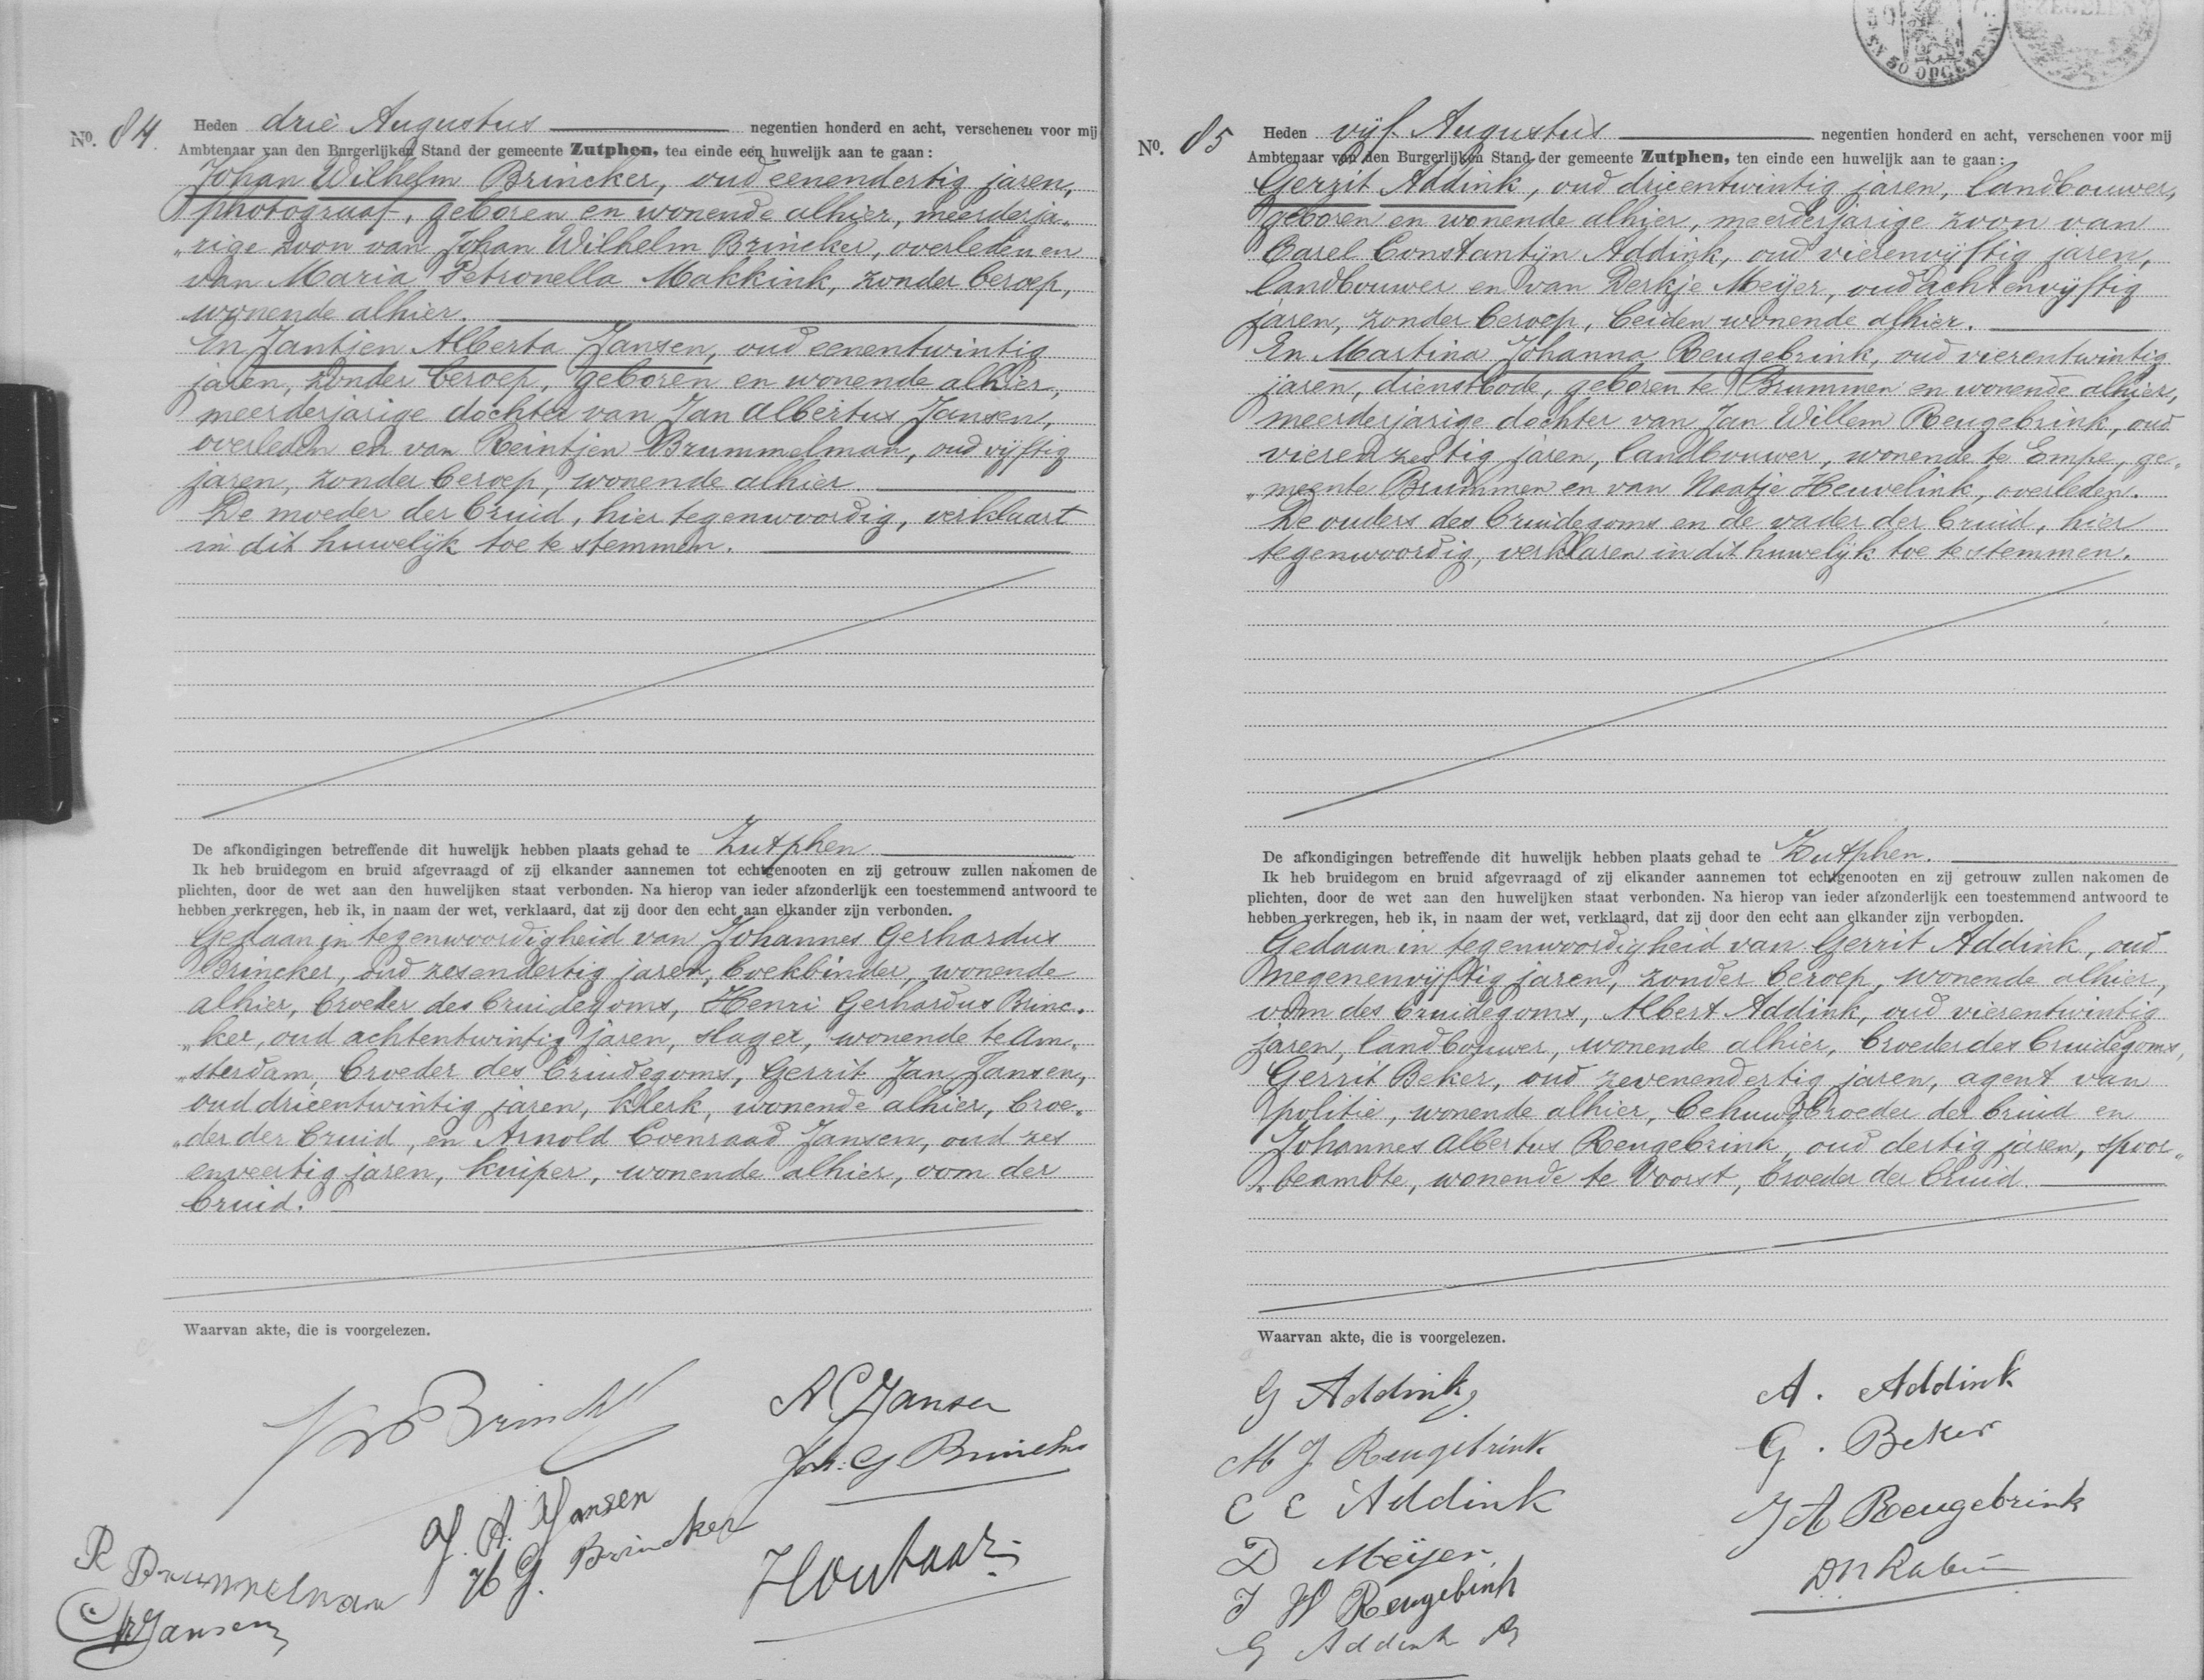 No. 84.
Heden drie Augustus negentien honderd en acht, verschenen voor mij
Ambtenaar van den Burgerlijken Stand der gemeente Zutphen, ten einde een huwelijk aan te gaan:
Johan Wilhelm Brincker, oud eenendertig jaren,
photograaf, geboren en wonende alhier, meerderja-
"rige zoon van Johan Wilhelm Brincker, overleden en
van Maria Petronella Makkink, zonder beroep,
wonende alhier.
En Jantjen Alberta Jansen, oud eenentwintig
jaren, zonder beroep, geboren en wonende alhier,
meerderjarige dochter van Jan Albertus Jansen,
overleden en van Reintjen Brummelman, oud vijftig
jaren, zonder beroep, wonende alhier
De moeder der bruid, hier tegenwoordig, verklaart
in dit huwelijk toe te stemmen.
De afkondigingen betreffende dit huwelijk hebben plaats gehad te Zutphen
Ik heb bruidegom en bruid afgevraagd of zij elkander aannemen tot echtgenooten en zij getrouw zullen nakomen de
plichten, door de wet aan den huwelijken staat verbonden. Na hierop van ieder afzonderlijk een toestemmend antwoord te
hebben verkregen, heb ik, in naam der wet, verklaard, dat zij door den echt aan elkander zijn verbonden.
Gedaan in tegenwoordigheid van Johannes Gerhardus
Brincker, oud zesendertig jaren, boekbinder, wonende
alhier, broeder des bruidegoms, Henri Gerhardus Brinc-
"ker, oud achtentwintig jaren, slager, wonende te Am-
"sterdam, broeder des bruidegoms, Gerrit Jan Jansen,
oud drieentwintig jaren, klerk, wonende alhier, broe-
"der der bruid, en Arnold Coenraad Jansen, oud zes
enveertig jaren, kuiper, wonende alhier, oom der
bruid.
Waarvan akte, die is voorgelezen.
A C Jansen
Joh: G Brincker
J. A. Jansen
H G. Brincker
R Brummelman
Jansen
No. 85
Heden vijf Augustus negentien honderd en acht, verschenen voor mij
Ambtenaar van den Burgerlijken Stand der gemeente Zutphen, ten einde een huwelijk aan te gaan:
Gerrit Addink, oud drieentwintig jaren, landbouwer,
geboren en wonende alhier, meerderjarige zoon van
Carel Constantijn Addink, oud vierenvijftig jaren,
landbouwer en van Derkje Meijer, oud achtenvijftig
jaren, zonder beroep, beiden wonende alhier.
En Martina Johanna Reugebrink, oud vierentwintig
jaren, dienstbode, geboren te Brummen en wonende alhier,
meerderjarige dochter van Jan Willem Reugebrink, oud
vierenzestig jaren, landbouwer, wonende te Empe, ge-
"meente Brummen en van Naatje Heuvelink, overleden.
De ouders des bruidegoms en de vader der bruid, hier
tegenwoordig, verklaren in dit huwelijk toe te stemmen.
De afkondigingen betreffende dit huwelijk hebben plaats gehad te Zutphen.
Ik heb bruidegom en bruid afgevraagd of zij elkander aannemen tot echtgenooten en zij getrouw zullen nakomen de
plichten, door de wet aan den huwelijken staat verbonden. Na hierop van ieder afzonderlijk een toestemmend antwoord te
hebben verkregen, heb ik, in naam der wet, verklaard, dat zij door den echt aan elkander zijn verbonden.
Gedaan in tegenwoordigheid van Gerrit Addink, oud
negenenvijftig jaren, zonder beroep, wonende alhier,
oom des bruidegoms, Albert Addink, oud vierentwintig
jaren, landbouwer, wonende alhier, broeder des bruidegoms,
Gerrit Beker, oud zevenendertig jaren, agent van
politie, wonende alhier, behuwdbroeder der bruid en
Johannes Albertus Reugebrink, oud dertig jaren, spoor-
"beambte, wonende te Voorst, broeder der bruid
Waarvan akte, die is voorgelezen.
G Addink
A. Addink
M J Reugebrink
G. Beker
C C Addink
J A Reugebrink
D Meijer
J W Reugebrink
G Addink